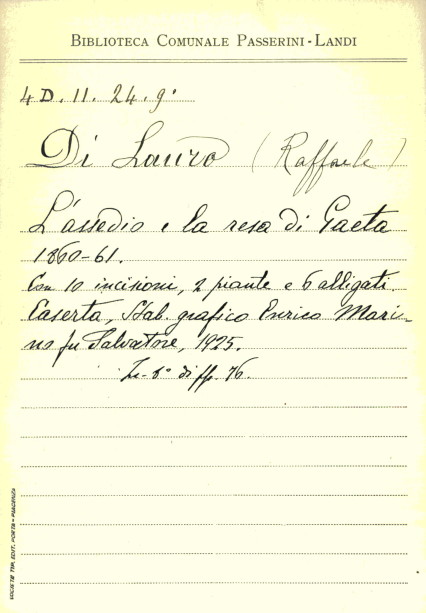 BIBLIOTECA COMUNALE PASSERINI-LANDI
4 D. 11. 24. 9°
Di Lauro (Raffaele)
L'assedio e la resa di Gaeta
1860-61.
Con 10 incisioni, 2 piante e 6 alligati.
Caserta, Stab. grafico Enrico Mari-
no fu Salvatore, 1925.
In-8° di pp. 76.
SOCIETÀ TIP. EDIT. PORTA - PIACENZA